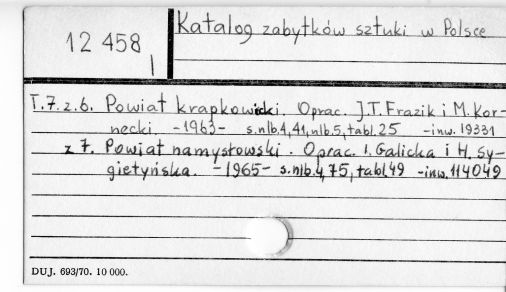 12 458
Katalog zabytków sztuki w Polsce
T.7.z.6. Powiat krapkowicki. Oprac. J.T. Frazik i M. Kor-
necki. -1963- s.nlb.4,41,nlb.5,tabl.25 -inw.19331
z 7. Powiat namysłowski. Oprac. I. Galicka i H. Sy-
gietyńska. -1965- s.nlb.4,75,tabl.49 -inw.114049
DUJ. 693/70. 10 000.